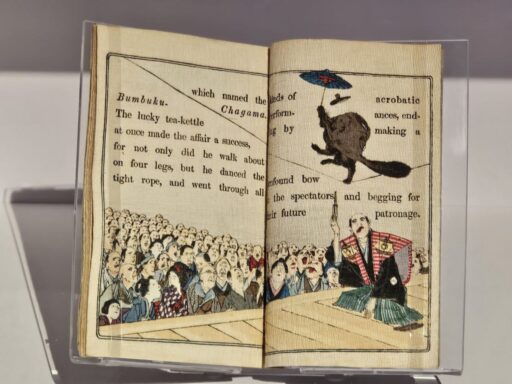 which named the
Bumbuku- Chagama.
The lucky tea-kettle
at once made the affair a success,
for not only did he walk about
on four legs, but he danced the
tight rope, and went through all
kinds of acrobatic
perform- ances, end-
ing by making a
profound bow
the spectators and begging for
their future patronage.